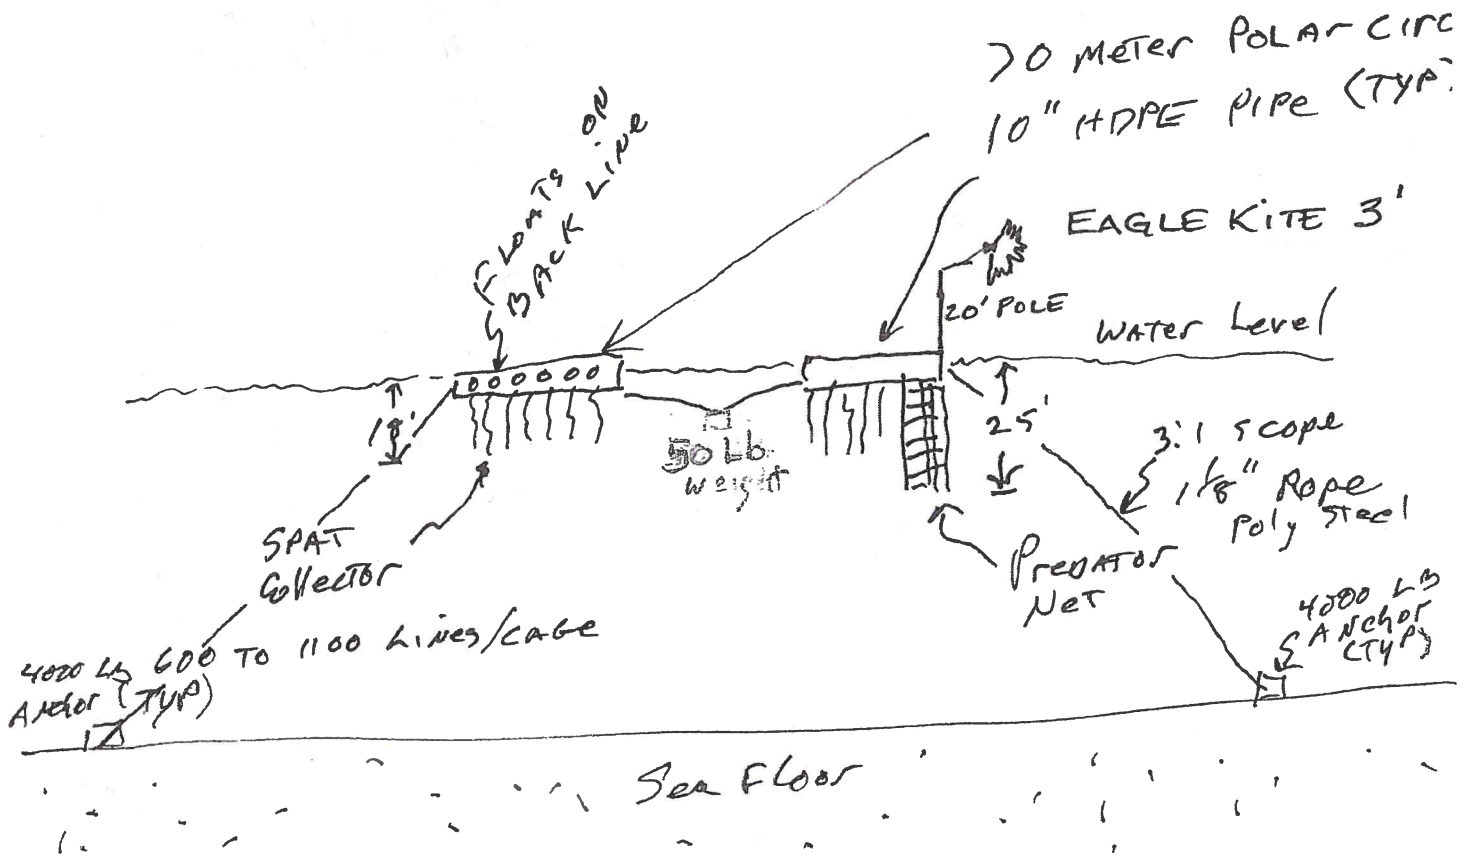 70 Meter Polar Circ
10" HDPE Pipe (TYP.
FLOATS ON
BACK LINE
EAGLE KITE 3'
20' POLE
WATER Level
18'
25'
50 Lb
weight
3:1 scope
1 1/8" Rope
Poly Steel
SPAT
Collector
PREDATOR
NET
600 TO 1100 LINES/CAGE
4000 LB
ANCHOR (TYP)
4000 LB
ANCHOR
(TYP)
Sea Floor